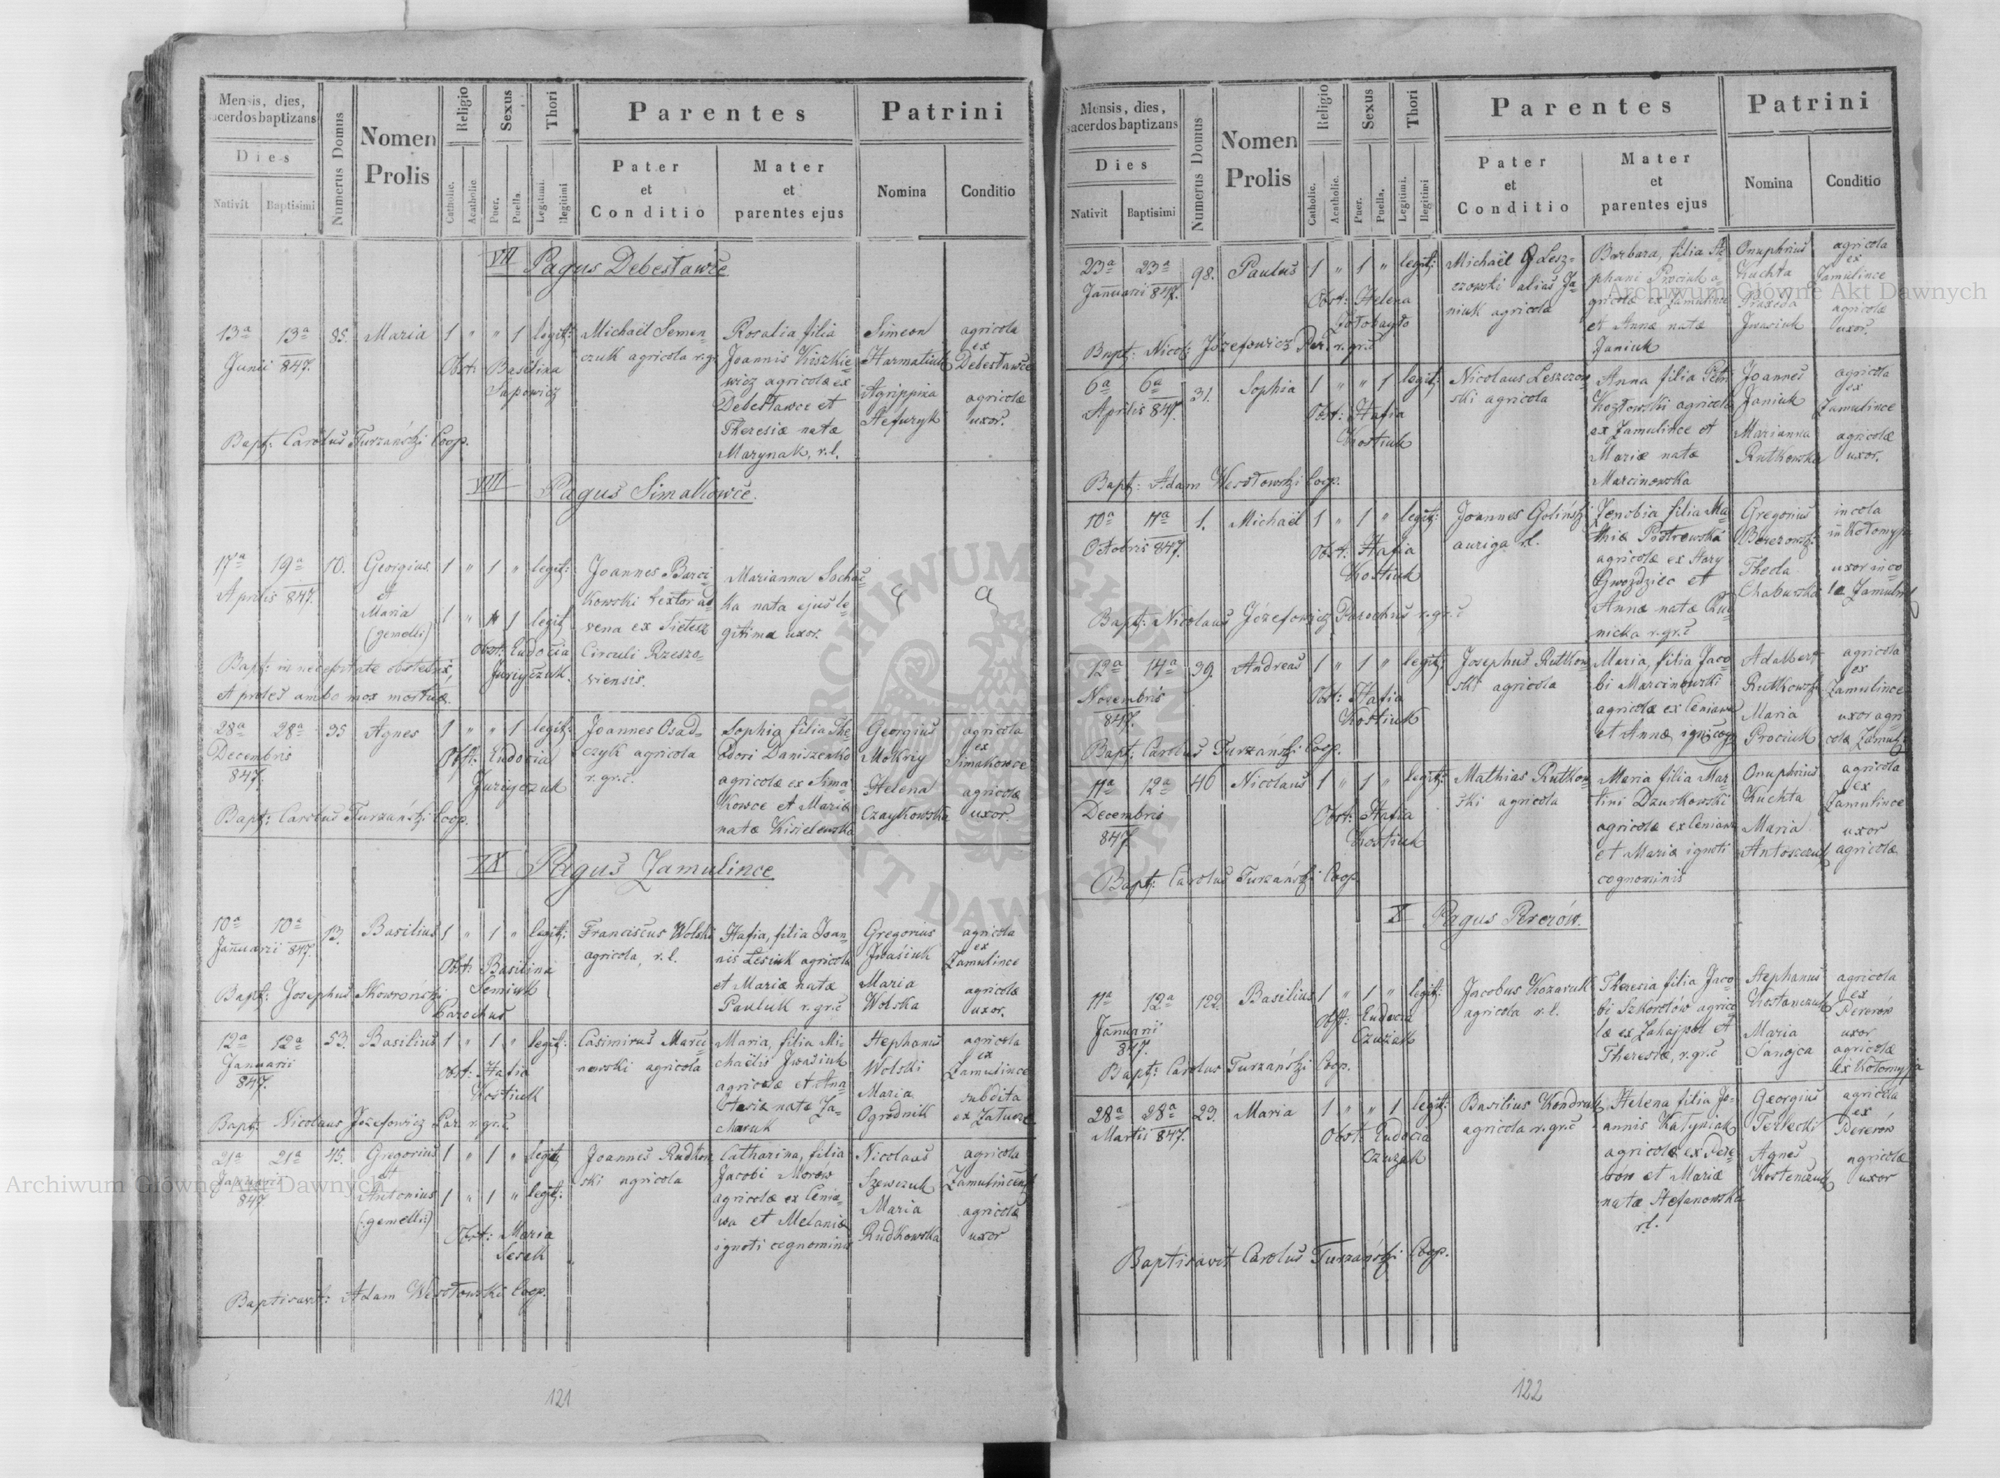 Mensis, dies,
sacerdos baptizans
Dies
Nativit
Baptisimi
Numerus Domus
Nomen
Prolis
Religio
Catholic.
Acatholic.
Sexus
Puer.
Puella.
Thori
Legitimi.
Illegitimi
Parentes
Pater
et
Conditio
Mater
et
parentes ejus
Patrini
Nomina
Conditio
VII Pagus Debesławce
13a 13a 85. Maria 1 " " 1 legit:
Junii 847.
Obst: Basilina
Michaël Semen-
czuk agricola r.gr.
Rosalia filia
Joannis Kiszkie-
wicz agricolæ ex
Debesławce et
Theresiæ natæ
Marynak, r.l.
Simeon
Harmatiuk
Agrippina
agricola
ex
Debesławce
agricolæ
uxor.
Bapt: Carolus Turzański Coop.
VIII Pagus Simakowce.
17a 19a 10. Georgius 1 " 1 " legit:
Aprilis 847.
et
Maria 1 " " 1 legit
(gemelli)
Obst: Eudocia
Juryczuk.
Joannes Barci-
kowski textor ad-
vena ex Sietesz
Circuli Rzeszo-
viensis.
Marianna Sochac-
ka nata ejus le-
gitima uxor.
Bapt: in necessitate obstetrix,
et proles ambo mox mortuæ.
28a 28a 35 Agnes 1 " " 1 legit:
Decembris
847.
Obst: Eudocia
Juryczuk
Joannes Osad-
czyk agricola
r.gr.c.
Sophia filia The-
odori Daniszenko
agricolæ ex Sima-
kowce et Mariæ
natæ Kisielewska
Georgius
Mokriy
Helena
Czaykowska
agricola
ex
Simakowce
agricolæ
uxor
Bapt: Carolus Turzański Coop.
IX Pagus Zamulince
10a 10a 13. Basilius 1 " 1 " legit:
Januarii 847.
Obst: Basilina
Semiuk
Franciscus Wolski
agricola, r.l.
Hafia, filia Joan-
nis Lesiuk agricolæ
et Mariæ natæ
Pauluk r.gr.c
Gregorius
Iwasiuk
Maria
Wolska
agricola
ex
Zamulince
agricolæ
uxor.
Bapt: Josephus Skowroński
Parochus
12a 12a 53. Basilius 1 " 1 " legit:
Januarii
847.
obst: Hafia
Kostiuk
Casimirus Marci-
nowski agricola
Maria, filia Mi-
chaëlis Iwasiuk
agricolæ et Ana-
stasiæ natæ Za-
charuk
Stephanus
Wolski
Maria
Ogrodnik
agricola
ex
Zamulince
subdita
ex Załucze
Bapt: Nicolaus Józefowicz Par. r.gr.c
21a 21a 45. Gregorius 1 " 1 " legit
Januarii
847
et
Antonius 1 " 1 " legit:
(:gemelli:)
Obst: Maria
Joannes Rudkow-
ski agricola
Catharina, filia
Jacobi Morów
agricolæ ex Cenia-
wa et Melaniæ
ignoti cognominis
Nicolaus
Szewczuk
Maria
Rudkowska
agricola
agricolæ
uxor
Baptisavit: Adam Wesołowski Coop.
121
Mensis, dies,
sacerdos baptizans
Dies
Nativit
Baptisimi
Numerus Domus
Nomen
Prolis
Religio
Catholic.
Acatholic.
Sexus
Puer.
Puella.
Thori
Legitimi.
Illegitimi
Parentes
Pater
et
Conditio
Mater
et
parentes ejus
Patrini
Nomina
Conditio
23a 23a 98. Paulus 1 " 1 " legit:
Januarii 847.
Obst: Helena
Michaël Lesz-
czowski alias Ja-
niuk agricola
Barbara, filia Ste-
phani Prociuk a-
gricolæ ex Zamulince
et Annæ natæ
Janiuk
Onuphrius
Kuchta
Iwasiuk
agricola
ex
Zamulince
agricolæ
uxor.
Bapt: Nicol: Józefowicz Par. r.gr.c
6a 6a 31. Sophia 1 " " 1 legit:
Aprilis 847.
Obst: Hafia
Kostiuk
Nicolaus Leszczow-
ski agricola
Anna filia Petri
Kozłowski agricolæ
ex Zamulince et
Mariæ natæ
Marcinowska
Joannes
Janiuk
Marianna
Rutkowska
agricola
ex
Zamulince
agricolæ
uxor.
Bapt: Adam Wesołowski Coop.
10a 11a 1. Michaël 1 " 1 " legit:
Octobris 847.
Obst: Hafia
Kostiuk
Joannes Goliński
auriga r.l.
Zenobia filia Ma-
thiæ Piotrowski
agricolæ ex Stary
Gwozdziec et
Annæ natæ
r.gr.c
Gregorius
Berezowski
Thecla
incola
in Kołomyja
uxor inco-
læ Zamulince
Bapt: Nicolaus Józefowicz Parochus r.gr.c
12a 14a 39. Andreas 1 " 1 " legit:
Novembris
847.
Obst: Hafia
Kostiuk
Josephus Rutkow-
ski agricola
Maria, filia Jaco-
bi Marcinowski
agricolæ ex Ceniawa
et Annæ
Adalbert
Rutkowski
Maria
Prociuk
agricola
ex
Zamulince
uxor agri-
colæ Zamul.
Bapt: Carolus Turzański Coop.
11a 12a 40 Nicolaus 1 " 1 " legit:
Decembris
847.
Obst: Hafia
Kostiuk
Mathias Rutkow-
ski agricola
Maria filia Mar-
tini Dzurkowski
agricolæ ex Ceniawa
et Mariæ ignoti
cognominis
Onuphrius
Kuchta
Maria
Antoszczuk
agricola
ex
Zamulince
uxor
agricolæ
Bapt: Carolus Turzański Coop
X Pagus Pererów.
11a 12a 122. Basilius 1 " 1 " legit:
Januarii
847.
Obst: Eudocia
Czuzak
Jacobus Kozaruk
agricola r.l.
Theresia filia Jaco-
bi Szkorotów agrico-
læ ex Zahajpol et
Theresiæ, r.gr.c
Stephanus
Kostanczuk
Maria
Sanojca
agricola
ex
Pererów
uxor
agricolæ
ex Kołomyja
Bapt: Carolus Turzański Coop.
28a 28a 23. Maria 1 " " 1 legit:
Martis 847.
Obst: Eudocia
Czuzak
Basilius Kondruk
agricola r.gr.c
Helena filia Jo-
annis Katyniak
agricolæ ex Pere-
row et Mariæ
natæ Stefanowska
r.l.
Georgius
Terlecki
Agnes
Kostenczuk
agricola
ex
Pererów
agricolæ
uxor
Baptisavit Carolus Turzański Coop.
122
Archiwum Główne Akt Dawnych
Archiwum Główne Akt Dawnych
ARCHIWUM GŁÓWNE
AKT DAWNYCH